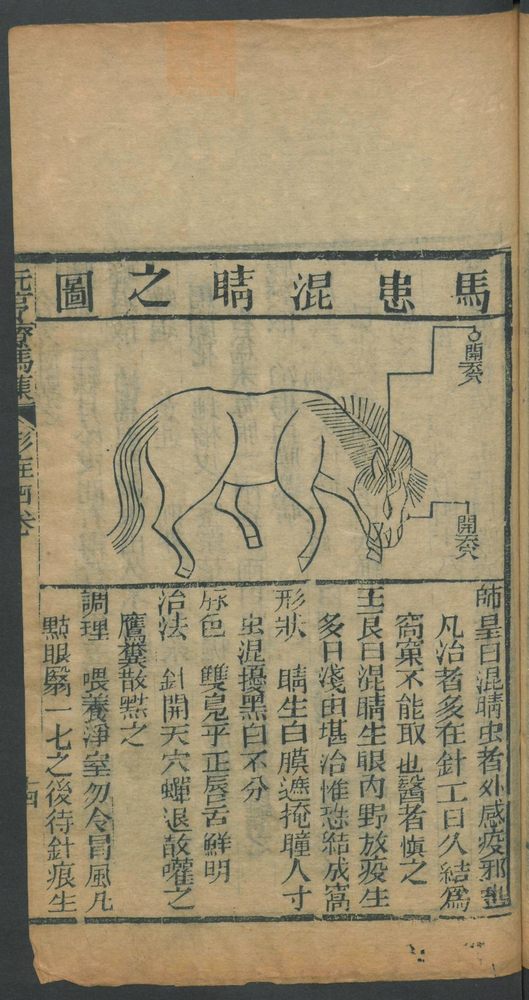 馬患混睛之圖
開天穴
開天穴
師皇曰混睛虫者外感疫邪
凡治者多在針工日久結爲
窩窠不能取也醫者慎之
王良曰混睛生眼内野放疫生
多日淺由堪治惟恐結成窩
形狀 睛生白膜遮掩瞳人寸
虫混擾黑白不分
脉色 雙鳧平正唇舌鮮明
治法 針開天穴蟬退散嚾之
鷹糞散㸃之
調理 喂養淨室勿令冒風凡
㸃眼翳一七之後待針痕生
元亨療馬集
卷
四